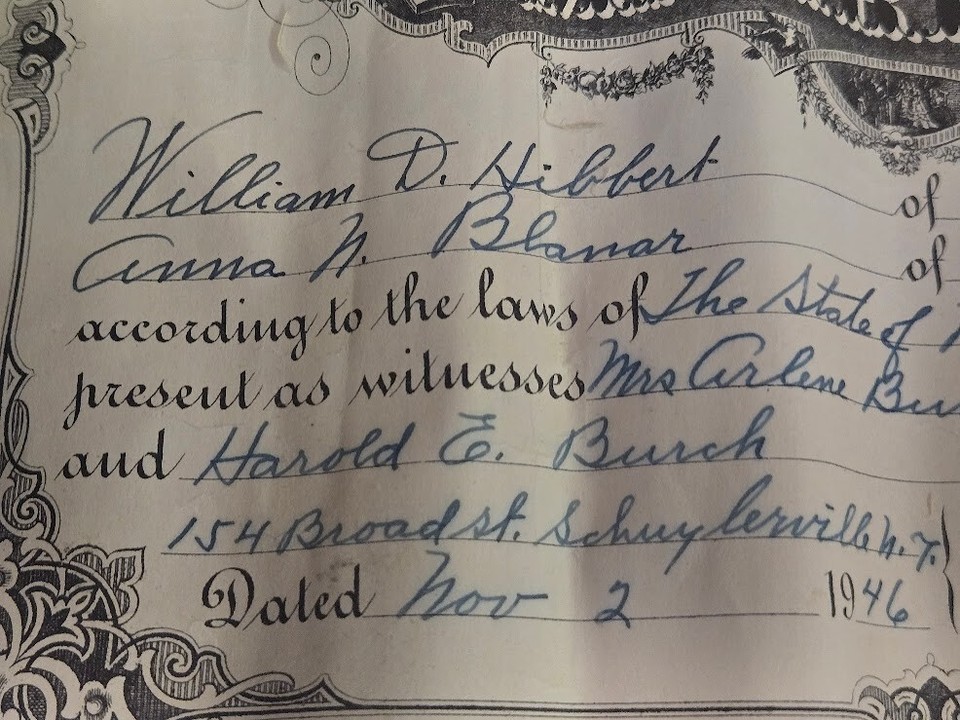 William D. Hibbert of
Anna N. Blanar of
according to the laws of The State of
present as witnesses Mrs Arlene
and Harold E. Burch
154 Broad st. Schuylerville N.Y.
Dated Nov 2 1946